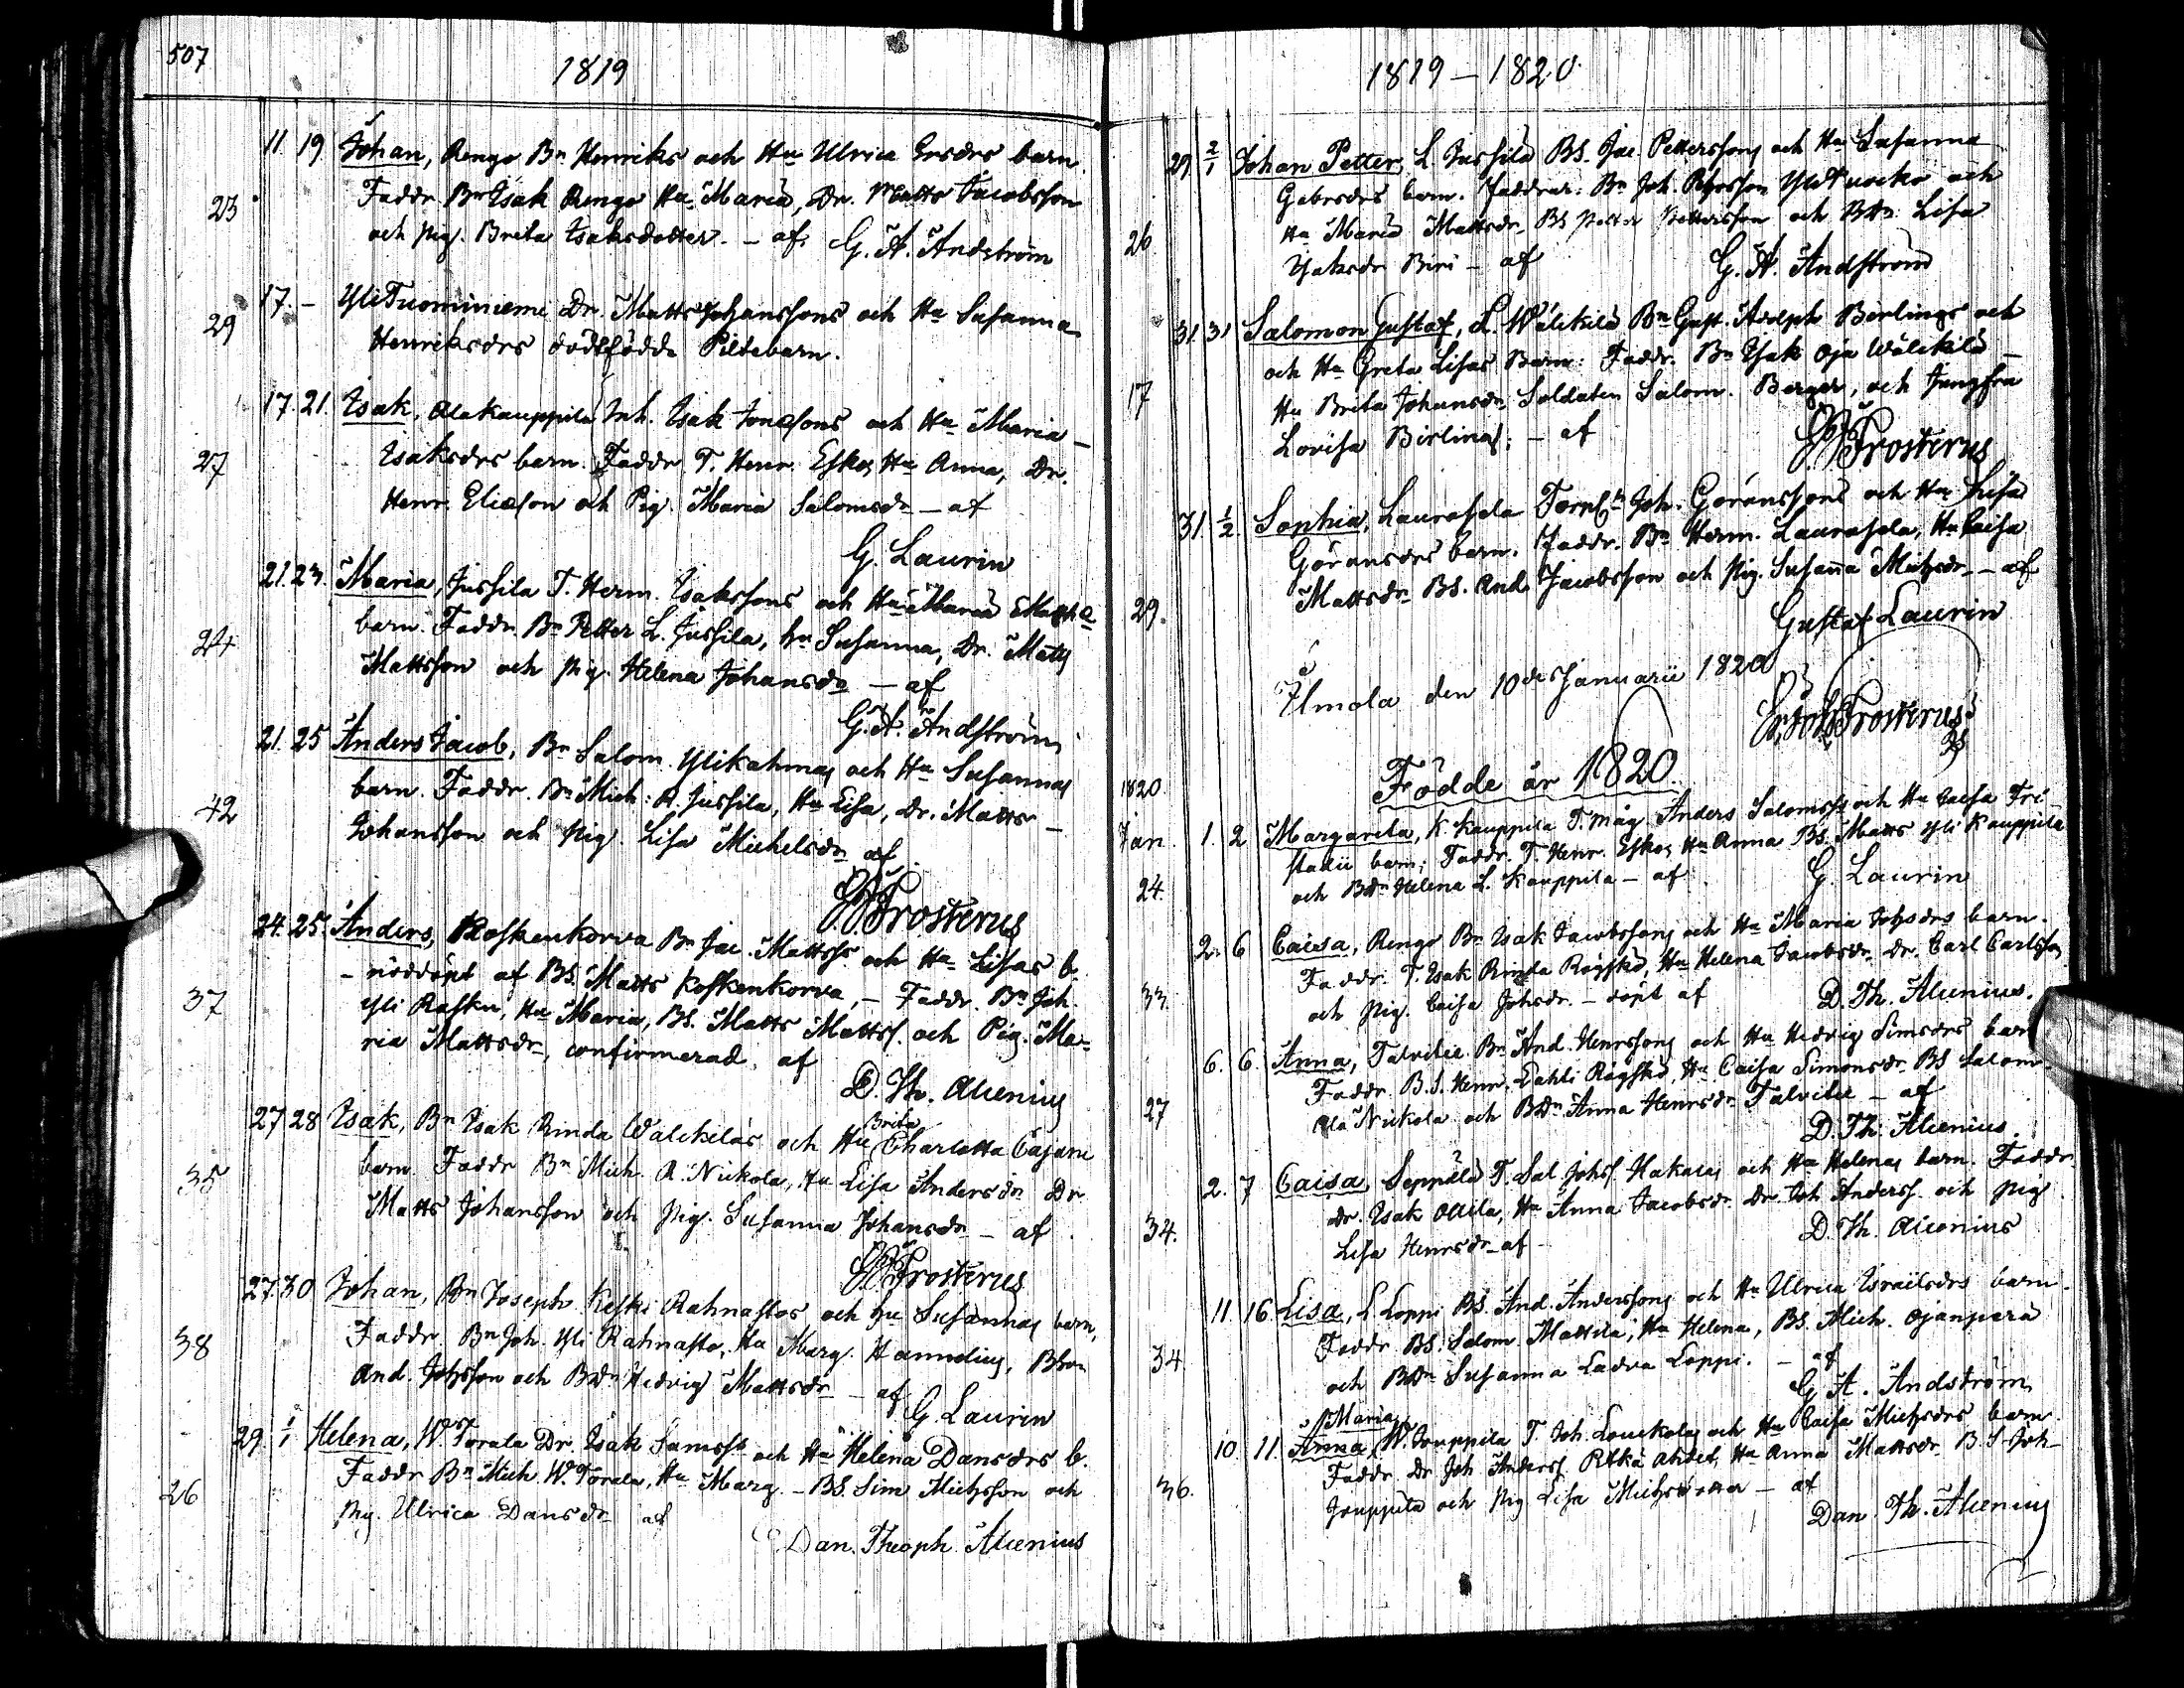 507
1819
11. 19 Johan, Rengo Bn Henriks och Hu Ulrica Ersdrs barn.
23 Faddr Bn Isak Rengo Hu Maria, Dr. Matts Jacobsson
och pig. Brita Isaksdotter. – af. G. A. Andström
17. – Yli Tuominiemi Dr. Matts Johanssons och Hu Susanna
29 Henriksdrs dödfödde Piltebarn.
17. 21. Isak, Alakauppila Inh. Isak Jonæsons och Hu Maria –
27 Isaksdrs barn. Faddr T. Henr. Eskos Hu Anna, Dr.
Henr. Eliæson och Pig. Maria Salomsdr – af
G. Laurin
21. 23. Maria, Jussila T. Herm. Isakssons och Hu Maria
24 barn. Faddr. Bn Petter L. Jussila, hu Susanna, Dr. Matts
Mattsson och pig. Helena Johansdr – af
G. A. Andström
21. 25 Anders Jacob, Bn Salom. Ylikahmas och Hu Susannas
42 barn. Faddr. Bn Mich. A. Jussila, Hu Lisa, Dr. Matts –
Johansson och pig. Lisa Michelsdr af
Frosterus
24. 25. Anders, Koskenkorva Bn Jac. Mattss. och Hu Lisas b.
– nöddöpt af BS. Matts Koskenkorva, – Faddr. Bn Joh.
37 Yli Rasku, Hu Maria, BS. Matts Mattss. och Pig. Ma=
ria Mattsdr, confirmerad af
D. Th. Alcenius
27 28 Isak, Bn Isak Rinda Wälckiläs och Hu Brita Charlotta Cajani
35 barn. Faddr Bn Mich. A. Nickola, Hu Lisa Andersdr Dr.
Matts Johansson och pig. Susanna Johansdr – af
Frosterus
27. 30 Johan, Bn Joseph Keski Rahnastos och hu Susannas barn,
38 Faddr. Bn Joh. Yli Rahnasto, Hu Marg. Hannelius,
And. Johsson och BDr Hedvig Mattsdr – af
G. Laurin
29. 1/1 Helena, W. Torala Dr. Isak Samss. och Hu Helena Dansdrs b.
26 Faddr Bn Mich. W. Torala, Hu Marg. – BS. Sim Michsson och
pig. Ulrica Dansdr af
Dan. Theoph. Alcenius
1819 – 1820
29 2/1 Johan Petter, L. Jussila BS. Jac. Petterssons och Hu Susanna
Gabrsdrs barn. Faddrar. Bn Joh. Yli Tuocko och
26 Hu Maria Mattsdr, BS Petter Pettersson och BDr Lisa
Isaksdr Biri – af
G. A. Andström
31. 31 Salomon Gustaf, L. Wälckilä Bn Gust. Adolph Birlings och
och Hu Greta Lisas Barn: Faddr. Bn Isak Oja Wälckilä –
17 Hu Brita Johansdr Soldaten Salom. Berger, och Jungfru
Lovisa Birling; – af
Frosterus
31. 1/2. Sophia, Laurosela Joh. Göranssons och Hu Lisa
Göransdrs barn. Faddr. Bn Herm. Laurosela, Hu Caisa
29. Mattsdr BS. And. Jacobsson och pig. Susanna Michsdr – af
Gustaf Laurin
Ilmola den 10de Januarii 1820
Frosterus
Födde år 1820.
1820
Jan. 1. 2 Margareta, K. Kauppila T. måg Anders Salomss. och Hu Caisa Fri
stadii barn; Faddr. T. Henr. Eskos Hu Anna BS. Matts Yli Kauppila
24. och BDr Helena L. Kauppila – af
G. Laurin
2. 6 Caisa, Rengo Bn Isak Jacobssons och Hu Maria Johsdrs barn.
33. Faddr. T. Isak Rinda Röyskö, Hu Helena Jacobsdr Dr. Carl Carlsson
och pig. Caisa Johsdr. – döpt af
D. Th. Alcenius.
6. 6. Anna, Talvitie Bn And. Henrssons och Hu Hedvig Simsdrs barn
27 Faddr. B.S. Henr. Lahti Röyskö, Hu Caisa Simonsdr. BS Salom.
Ala Nickola och BDr Anna Henrsdr Talvitie – af
D. Th. Alcenius.
2. 7 Caisa, Seppälä T. Sal. Johss. Hakalas och Hu Helenas barn. Faddr.
34. Dr. Isak Ollila, Hu Anna Jacobsdr. Dr. Joh. Anderss. och pig
Lisa Henrsdr af –
D. Th. Alcenius
11. 16. Lisa, L Loppi BS. And. Anderssons och Hu Ulrica Israilsdrs barn.
34. Faddr. BS. Salom Mattila, Hu Helena, BS. Mich. Ojanperä
och BDr Susanna Ladva Loppi. – af
G. A. Andström
10. 11. Anna Maria, W. Jouppila T. Joh. Louckolas och Hu Caisa Michsdrs barn
36. Faddr. Dr Joh. Anderss. Pitkä ahdet, Hu Anna Mattsdr. B.S. Joh
Jouppila och pig Lisa Michsdotter – af
Dan. Th. Alcenius